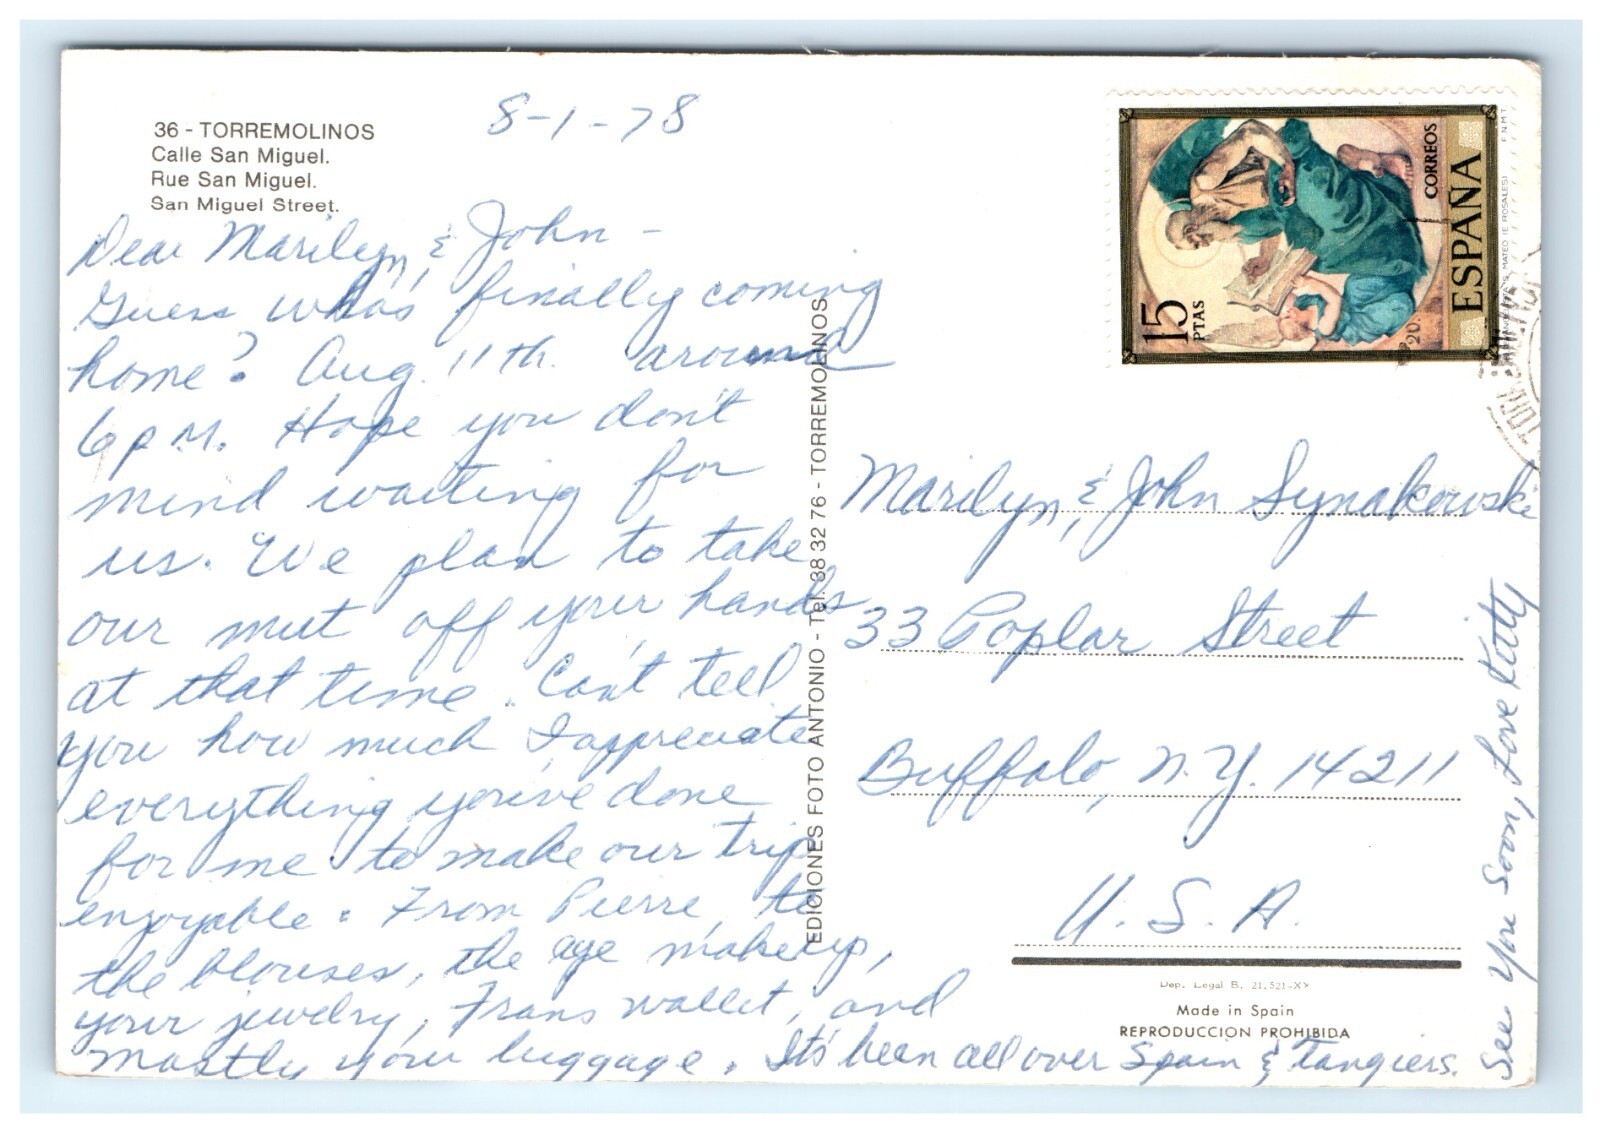 36 - TORREMOLINOS
Calle San Miguel.
Rue San Miguel.
San Miguel Street.
8-1-78
Dear Marilyn, & John -
Guess who's finally coming
home? Aug. 11th. around
6 p M. Hope you don't
mind waiting for
us. We plan to take
our mut off your hands
at that time. Can't tell
you how much I appreciate
everything you've done
for me to make our trip
enjoyable. From Pierre, to
the blouses, the eye makeup,
your jewelry, Frans wallet, and
mostly your luggage. Its been all over Spain & Tangiers.
See You Soon, Love Kitty
EDICIONES FOTO ANTONIO - Tel. 38 32 76 - TORREMOLINOS
15 PTAS
CORREOS
ESPAÑA
F.N.M.T.
Marilyn, & John Synakowski
33 Poplar Street
Buffalo, N.Y. 14211
U.S.A.
Dep. Legal B. 21.521-XX
Made in Spain
REPRODUCCION PROHIBIDA